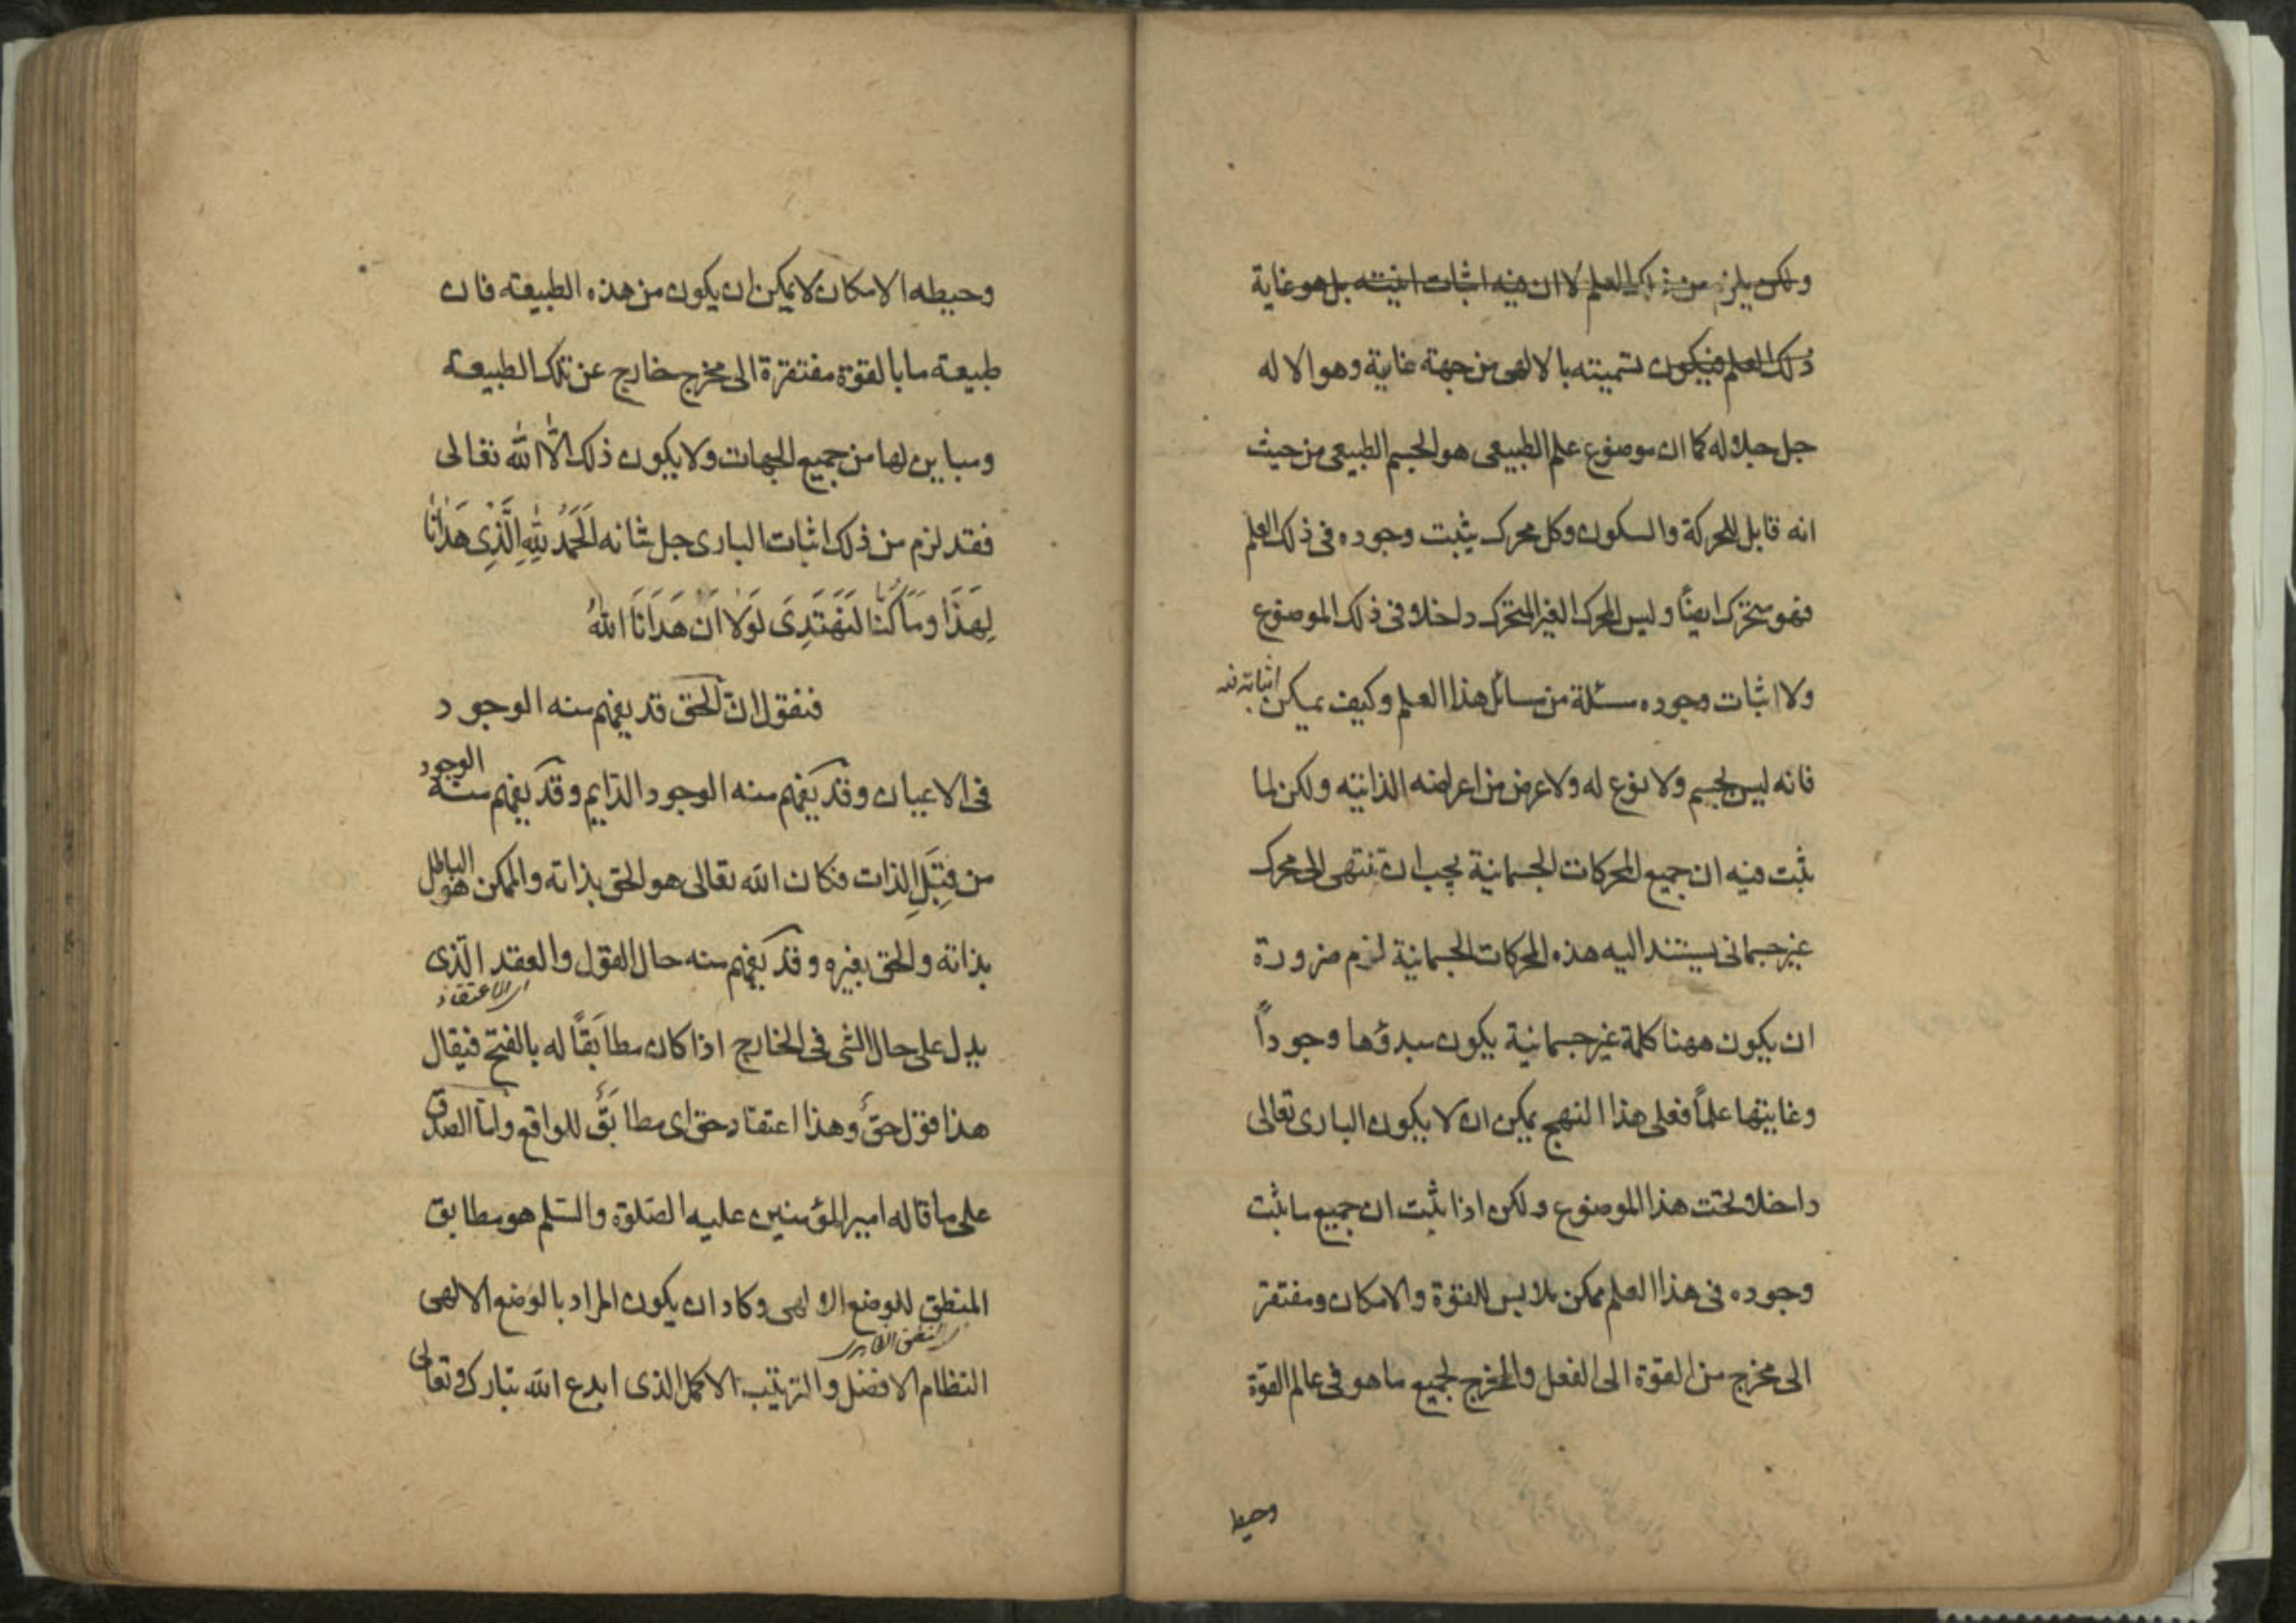 ولكن يلزم من ذلك العلم لا ان فيه اثبات انيته بل هو غاية
ذلك العلم فيكون تسميته بالالهى من جهة غاية وهو الاله
جل جلاله كما ان موضوع علم الطبيعى هو الجسم الطبيعى من حيث
انه قابل للحركة والسكون وكل محرك يثبت وجوده فى ذلك العلم
فهو متحرك ايضًا وليس المحرك الغير المتحرك داخلا فى ذلك الموضوع
ولا اثبات وجوده مسئلة من مسائل هذا العلم وكيف يمكن اثباته فيه
فانه ليس بجسم ولا نوع له ولا عرض من اعراضه الذاتيته ولكن لما
ثبت فيه ان جميع المحركات الجسمانية يجب ان تنتهى الى محرك
غير جسمانى يستند اليه هذه المحركات الجسمانية لزم ضرورة
ان يكون ههنا كلمة غير جسمانية يكون مبدؤها وجوداً
وغايتها علماً فعلى هذا النهج يمكن ان لا يكون البارى تعالى
داخلا تحت هذا الموضوع ولكن اذا ثبت ان جميع ما ثبت
وجوده فى هذا العلم ممكن ملابس للقوة والامكان ومفتقر
الى مخرج من القوة الى الفعل والمخرج لجميع ما هو فى عالم القوة
وحيطه
وحيطه الامكان لا يمكن ان يكون من هذه الطبيعة فان
طبيعة ما بالقوة مفتقرة الى مخرج خارج عن تلك الطبيعة
ومباين لها من جميع الجهات ولا يكون ذلك الّا الله تعالى
فقد لزم من ذلك اثبات البارى جل شانه اَلْحَمْدُ لِلّٰهِ الَّذِى هَدٰانٰا
لِهَذَا وَمَا كُنَّا لِنَهْتَدِىَ لَوْلَا اَنْ هَدَانَا اللهُ
فنقول ان الحق قد يفهم منه الوجود
فى الاعيان وقد يفهم منه الوجود الدايم وقد يفهم منه الوجود
من قِبَلِ الذات فكان الله تعالى هو الحق بذاته والممكن هو الباطل
بذاته والحق بغيره وقد يفهم منه حال القول والعقد الّذى
اى الاعتقاد
يدل على حال الشى فى الخارج اذا كان مطابَقاً له بالفتح فيقال
هذا قول حقٌ وهذا اعتقاد حق اى مطابَقٌ للواقع وامّا الصدق
على ما قاله امير المؤمنين عليه الصّلوة والسّلم هو مطابق
المنطق للوضع الالهى وكاد ان يكون المراد بالوضع الالهى
النظام الافضل والترتيب الاكمل الذى ابدع الله تبارك وتعالى